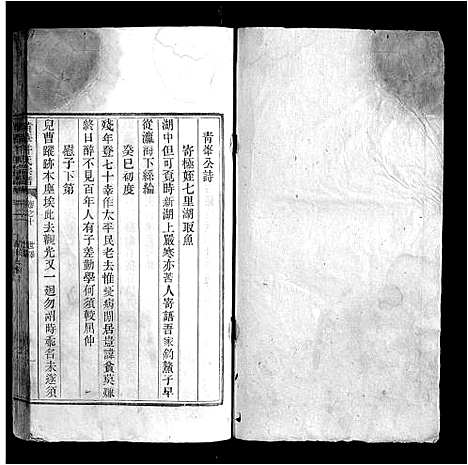 青峯公詩
寄極姪七里湖取魚
湖中但可竟時新湖上嚴寒亦苦人寄語吾家釣鰲子早
從瀛海下絲綸
癸巳初度
殘年登七十幸作太平民老去惟愛病閒居豈諱貧莫嫌
終日醉不見百年人有子差勤學何須較屈伸
慰子下第
兒曹蹤跡本塵埃此去觀光又一迴勿謂時乖名未遂須